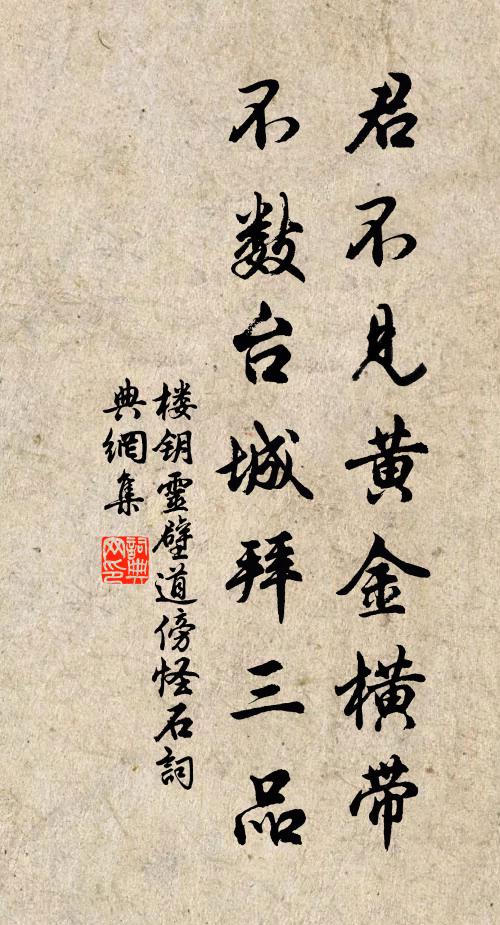 君不见黄金横带
不数台城拜三品
楼钥靈壁道傍怪石詞
典網集
詞典
网印